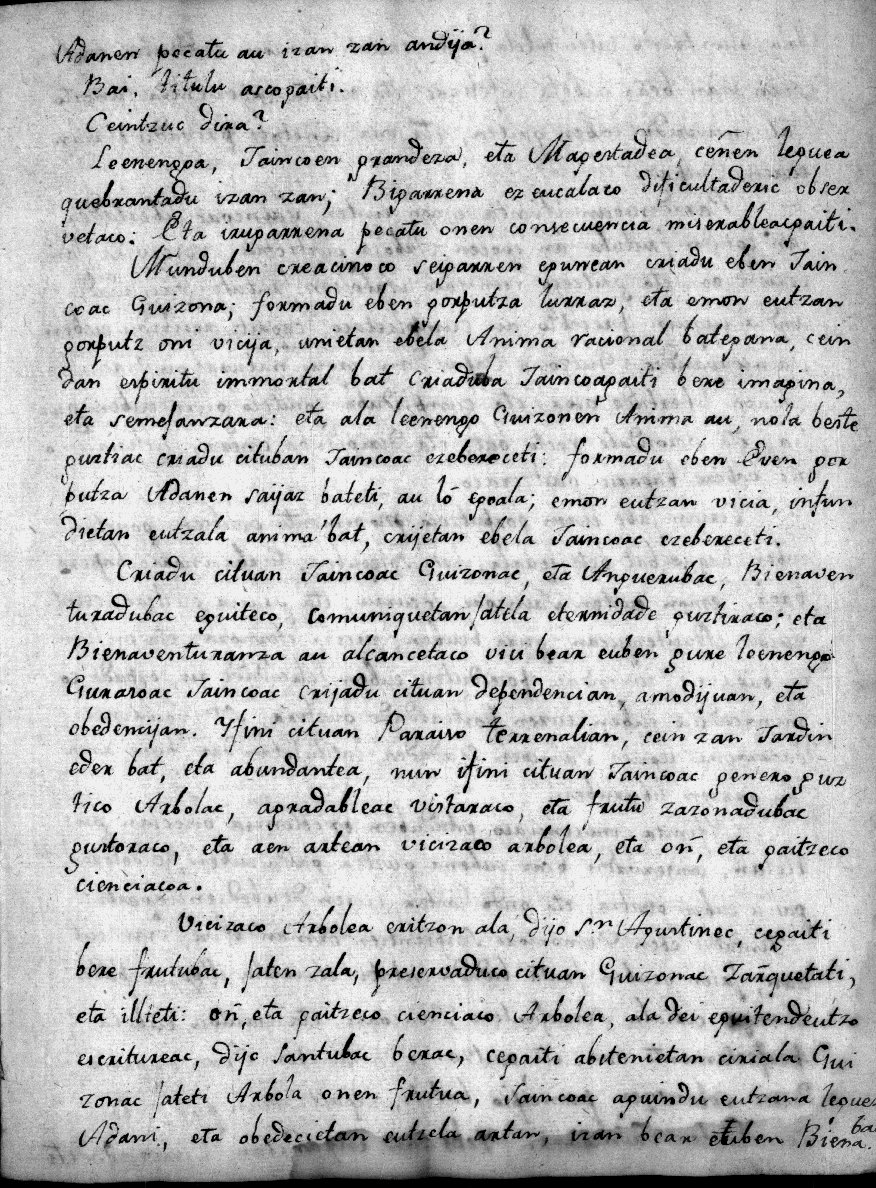 Adanen pecatu au izan zan andija?
Bai, titulu ascogaiti.
Ceintzuc dira?
Leenengoa, Jaincoen grandeza, eta Magestadea, ceñen leguea
quebrantadu izan zan; Bigarrena ez eucalaco dificultaderic obser
vetaco: Eta irugarrena pecatu onen consecuencia miserableacgaiti.
Munduben creacinoco seigarren egunean criadu eben Jain
coac Guizona; formadu eben gorputza lurraz, eta emon eutzan
gorputz oni vicija, unietan ebela Anima racional bategana, cein
dan espiritu immortal bat criaduba Jaincoagaiti bere imagina,
eta semejanzara: eta ala leenengo Guizonen Anima au, nola beste
guztiac criadu cituban Jaincoac ezebereceti: formadu eben Even gor
putza Adanen saijaz bateti, au lô egoala; emon eutzan vicia, infun
dietan eutzala anima bat, crijetan ebela Jaincoac ezebereceti.
Criadu cituan Jaincoac Guizonac, eta Anguerubac, Bienaven
turadubac eguiteco, comuniquetan jatela eternidade guztiraco; eta
Bienaventuranza au alcancetaco vici bear euben gure leenengo
Gurasoac Jaincoac crijadu cituan dependencian, amodijuan, eta
obedencijan. Ifini cituan Paraiso terrenalian, cein zan Jardin
eder bat, eta abundantea, nun ifini cituan Jaincoac genero guz
tico Arbolac, agradableac vistaraco, eta frutu zazonadubac
gustoraco, eta aen artean vicizaco arbolea, eta oñ, eta gaitzeco
cienciacoa.
Vicizaco Arbolea eritzon ala, dijo Sn Agustinec, cegaiti
bere frutubac, jaten zala, preservaduco cituan Guizonac Zarquetati,
eta illieti: oñ, eta gaitzeco cienciaco Arbolea, ala dei eguitendeutzo
escritureac, dijo Santubac berac, cegaiti abstenietan ciriala Gui
zonac jateti Arbola onen frutua, Jaincoac aguindu eutzana leguez
Adani, eta obedecietan eutzela artan, izan bear eben Biena
ba